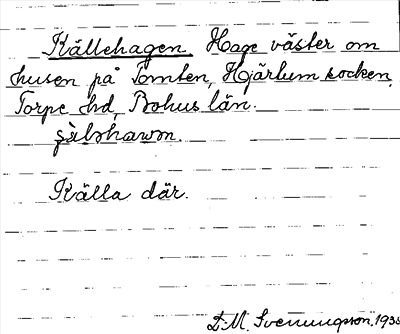 Källehagen. Hage väster om
husen på Tomten, Hjärtum socken,
Torpe hd, Bohus län.
Källa där.
D-M. Svenungsson. 1938